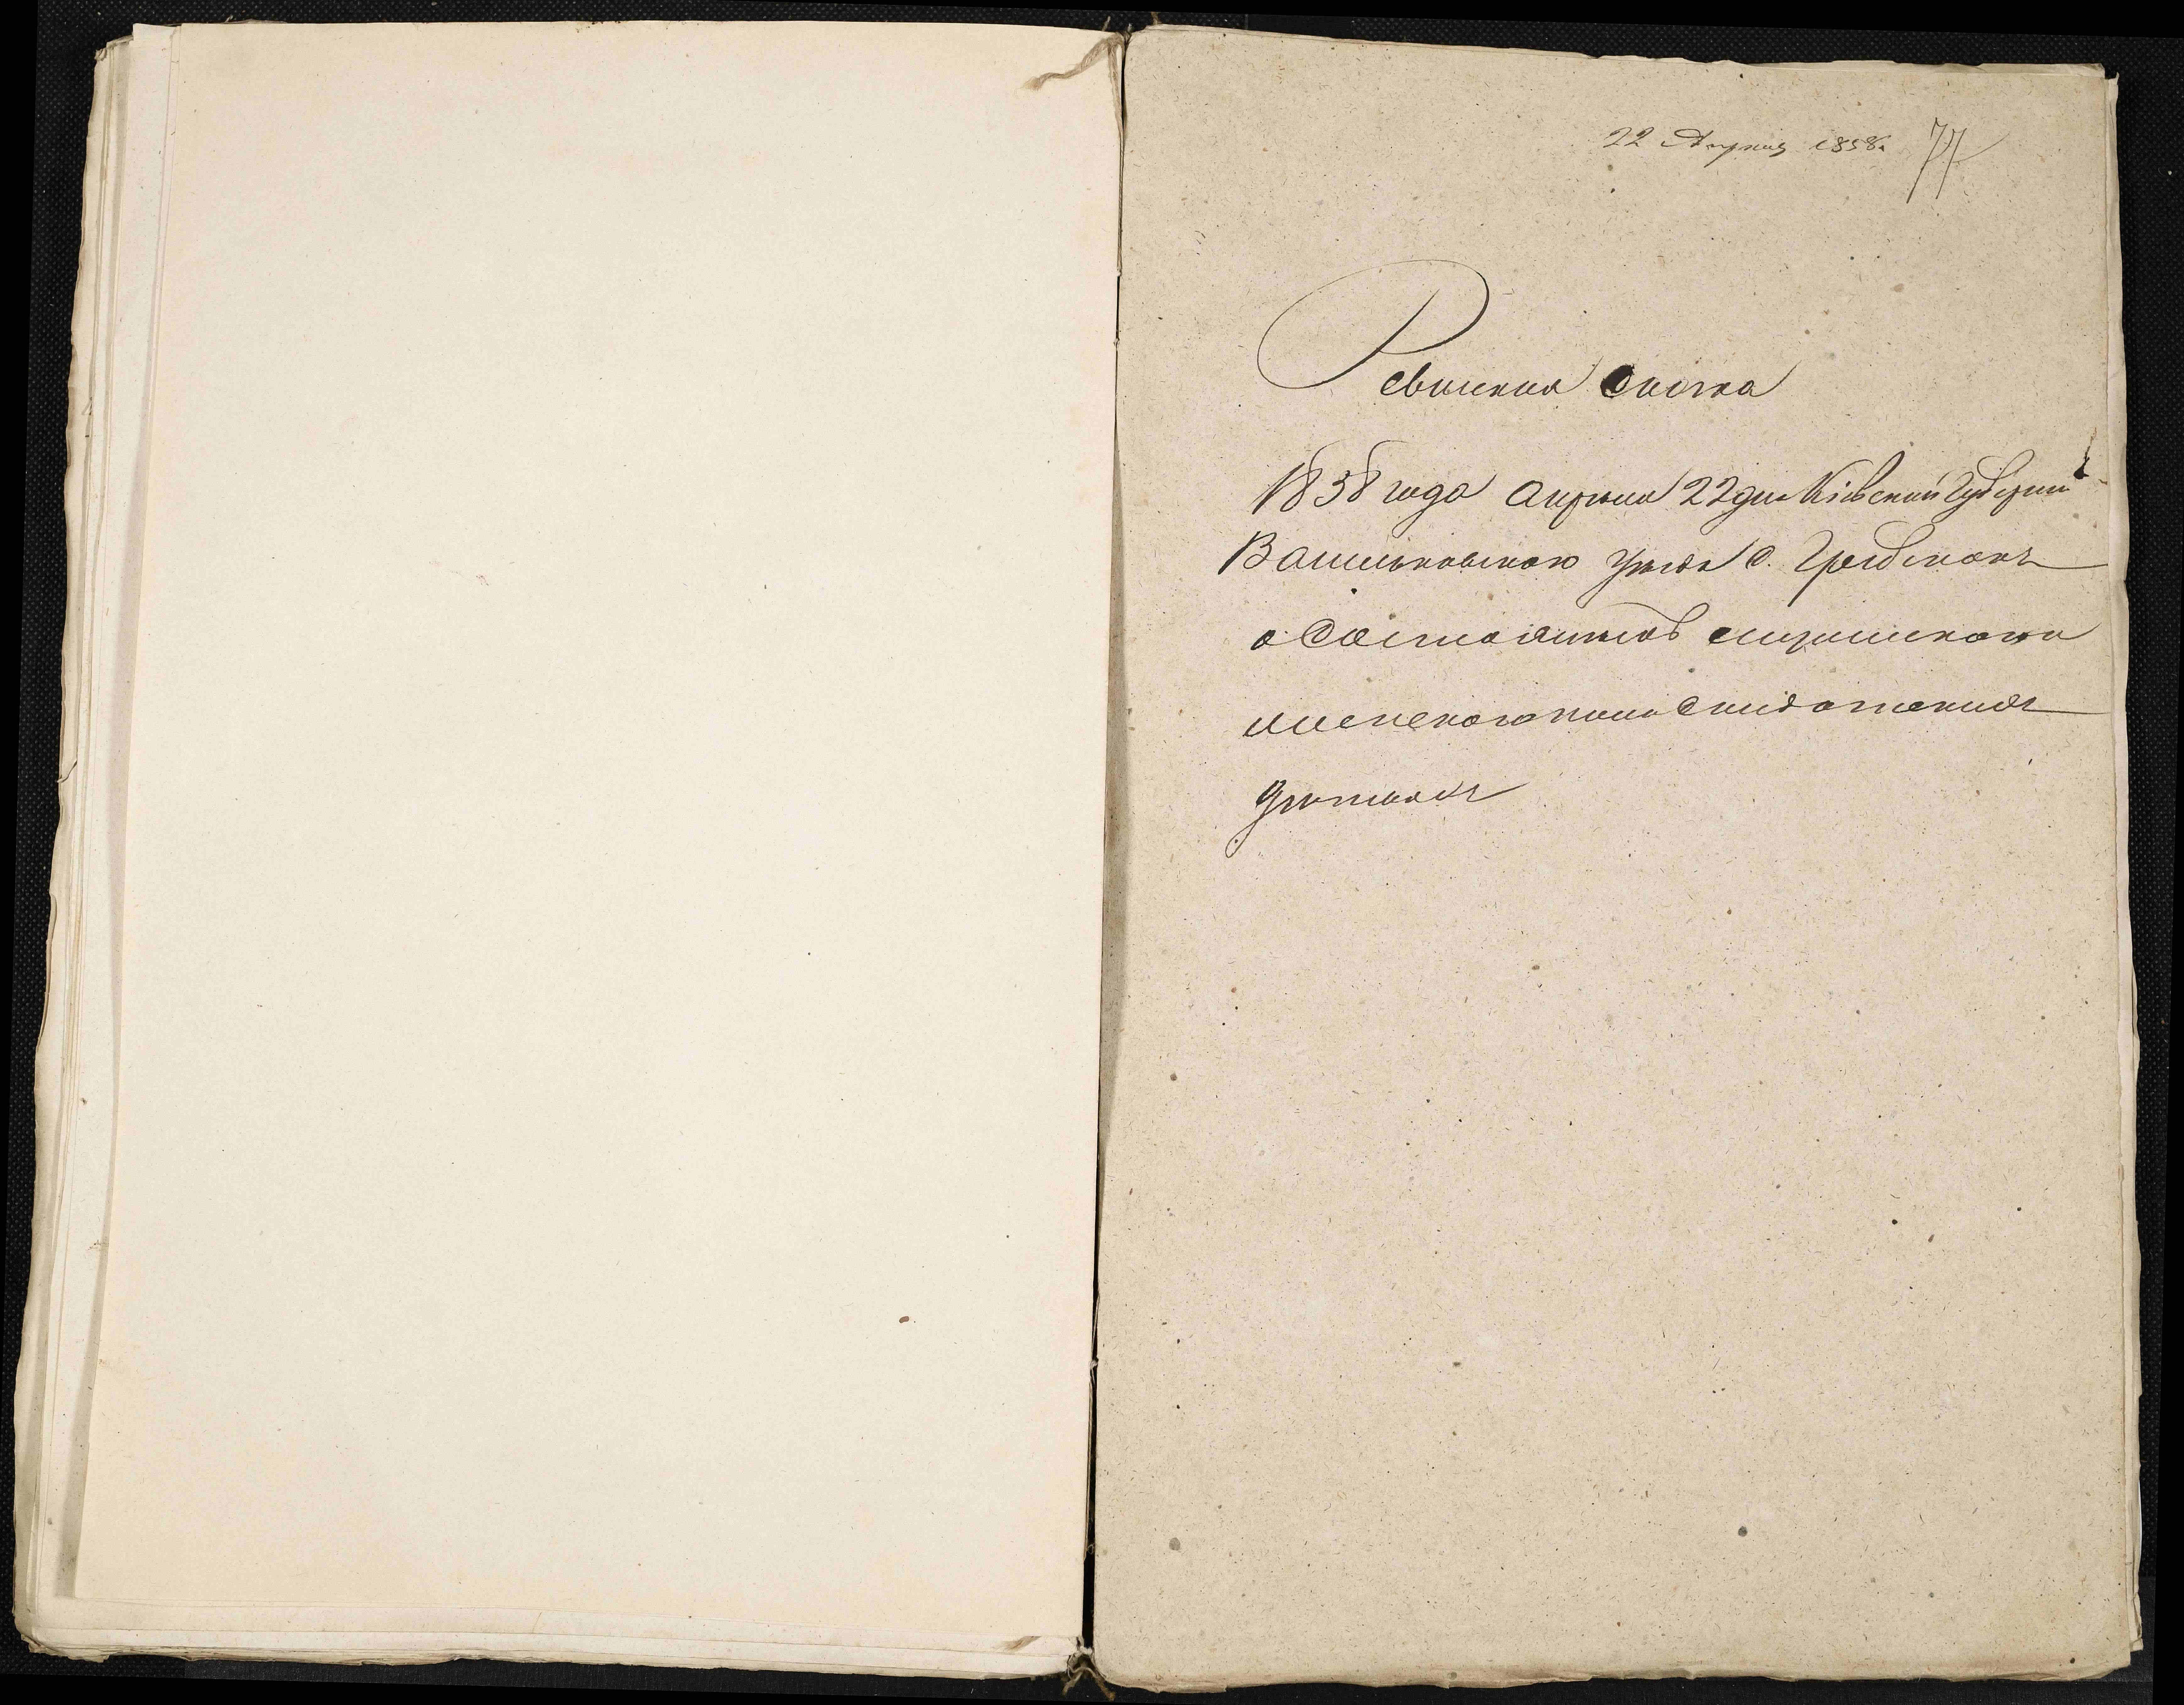 22 Апреля 1858 г. 77
Ревизская Сказка
1858 года Апреля 22 дня Кіевской Губерніи
Васильковскаго уезда С. Гребенокъ
о Состоящихъ мужескаго и
женскаго пола Солдатскихъ
детяхъ